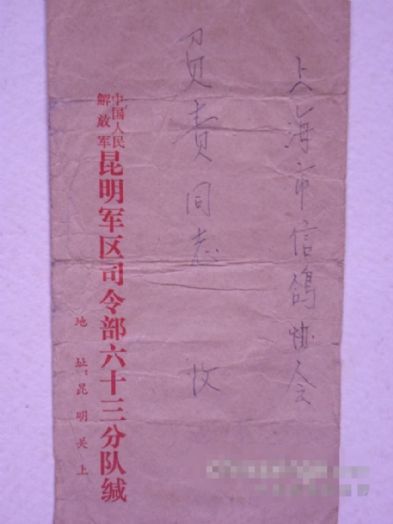 上海市信鸽协会
负责同志 收
中国人民解放军
昆明军区司令部六十三分队缄
地址:昆明关上